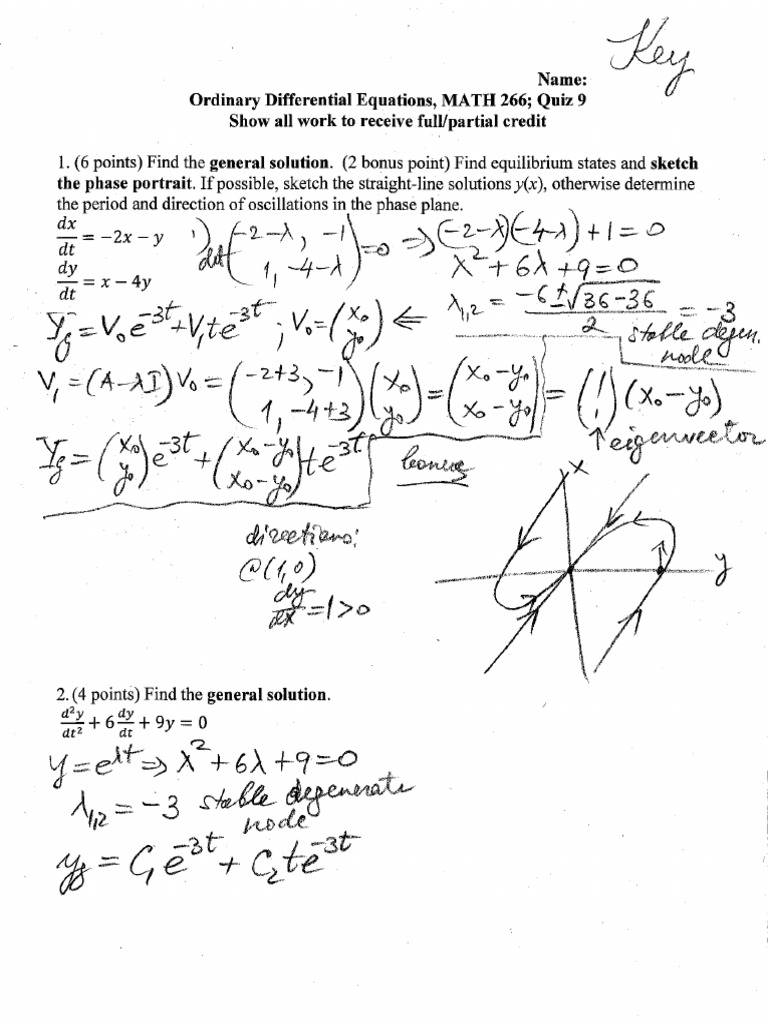 Key
Name:
Ordinary Differential Equations, MATH 266; Quiz 9
Show all work to receive full/partial credit
1. (6 points) Find the general solution. (2 bonus point) Find equilibrium states and sketch
the phase portrait. If possible, sketch the straight-line solutions y(x), otherwise determine
the period and direction of oscillations in the phase plane.
dx/dt = -2x - y
dy/dt = x - 4y
1) det (-2-λ, -1; 1, -4-λ) = 0 => (-2-λ)(-4-λ) + 1 = 0
λ² + 6λ + 9 = 0
λ1,2 = (-6 ± √(36-36))/2 = -3
stable degen. node
Yg = V0 e^-3t + V1 t e^-3t ; V0 = (x0; y0) <=
V1 = (A-λI) V0 = (-2+3, -1; 1, -4+3) (x0; y0) = (x0-y0; x0-y0) = (1; 1) (x0-y0)
↑ eigenvector
Yg = (x0; y0) e^-3t + (x0-y0; x0-y0) t e^-3t
bonus
x
y
directions:
@(1,0)
dy/dx = 1 > 0
2. (4 points) Find the general solution.
d²y/dt² + 6 dy/dt + 9y = 0
y = e^λt => λ² + 6λ + 9 = 0
λ1,2 = -3 stable degenerate
node
yg = C1 e^-3t + C2 t e^-3t